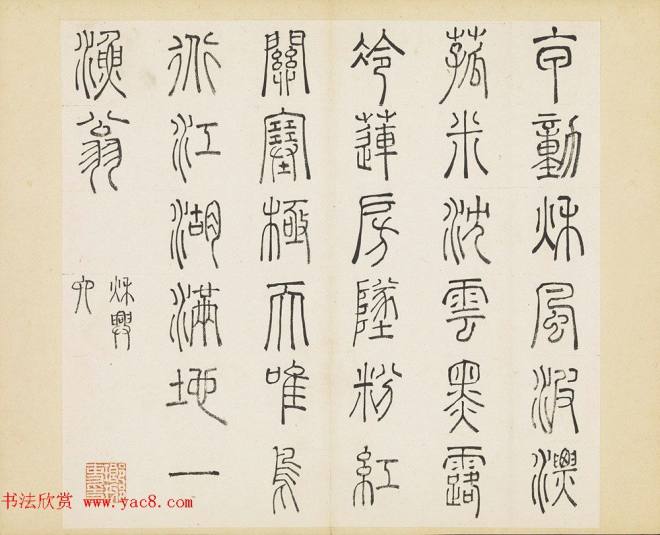 甲動秋風波漂
菰米沈雲黑露
冷蓮房墜粉紅
關塞極天唯鳥
道江湖滿地一
漁翁
秋興
六
书法欣赏 www.yac8.com